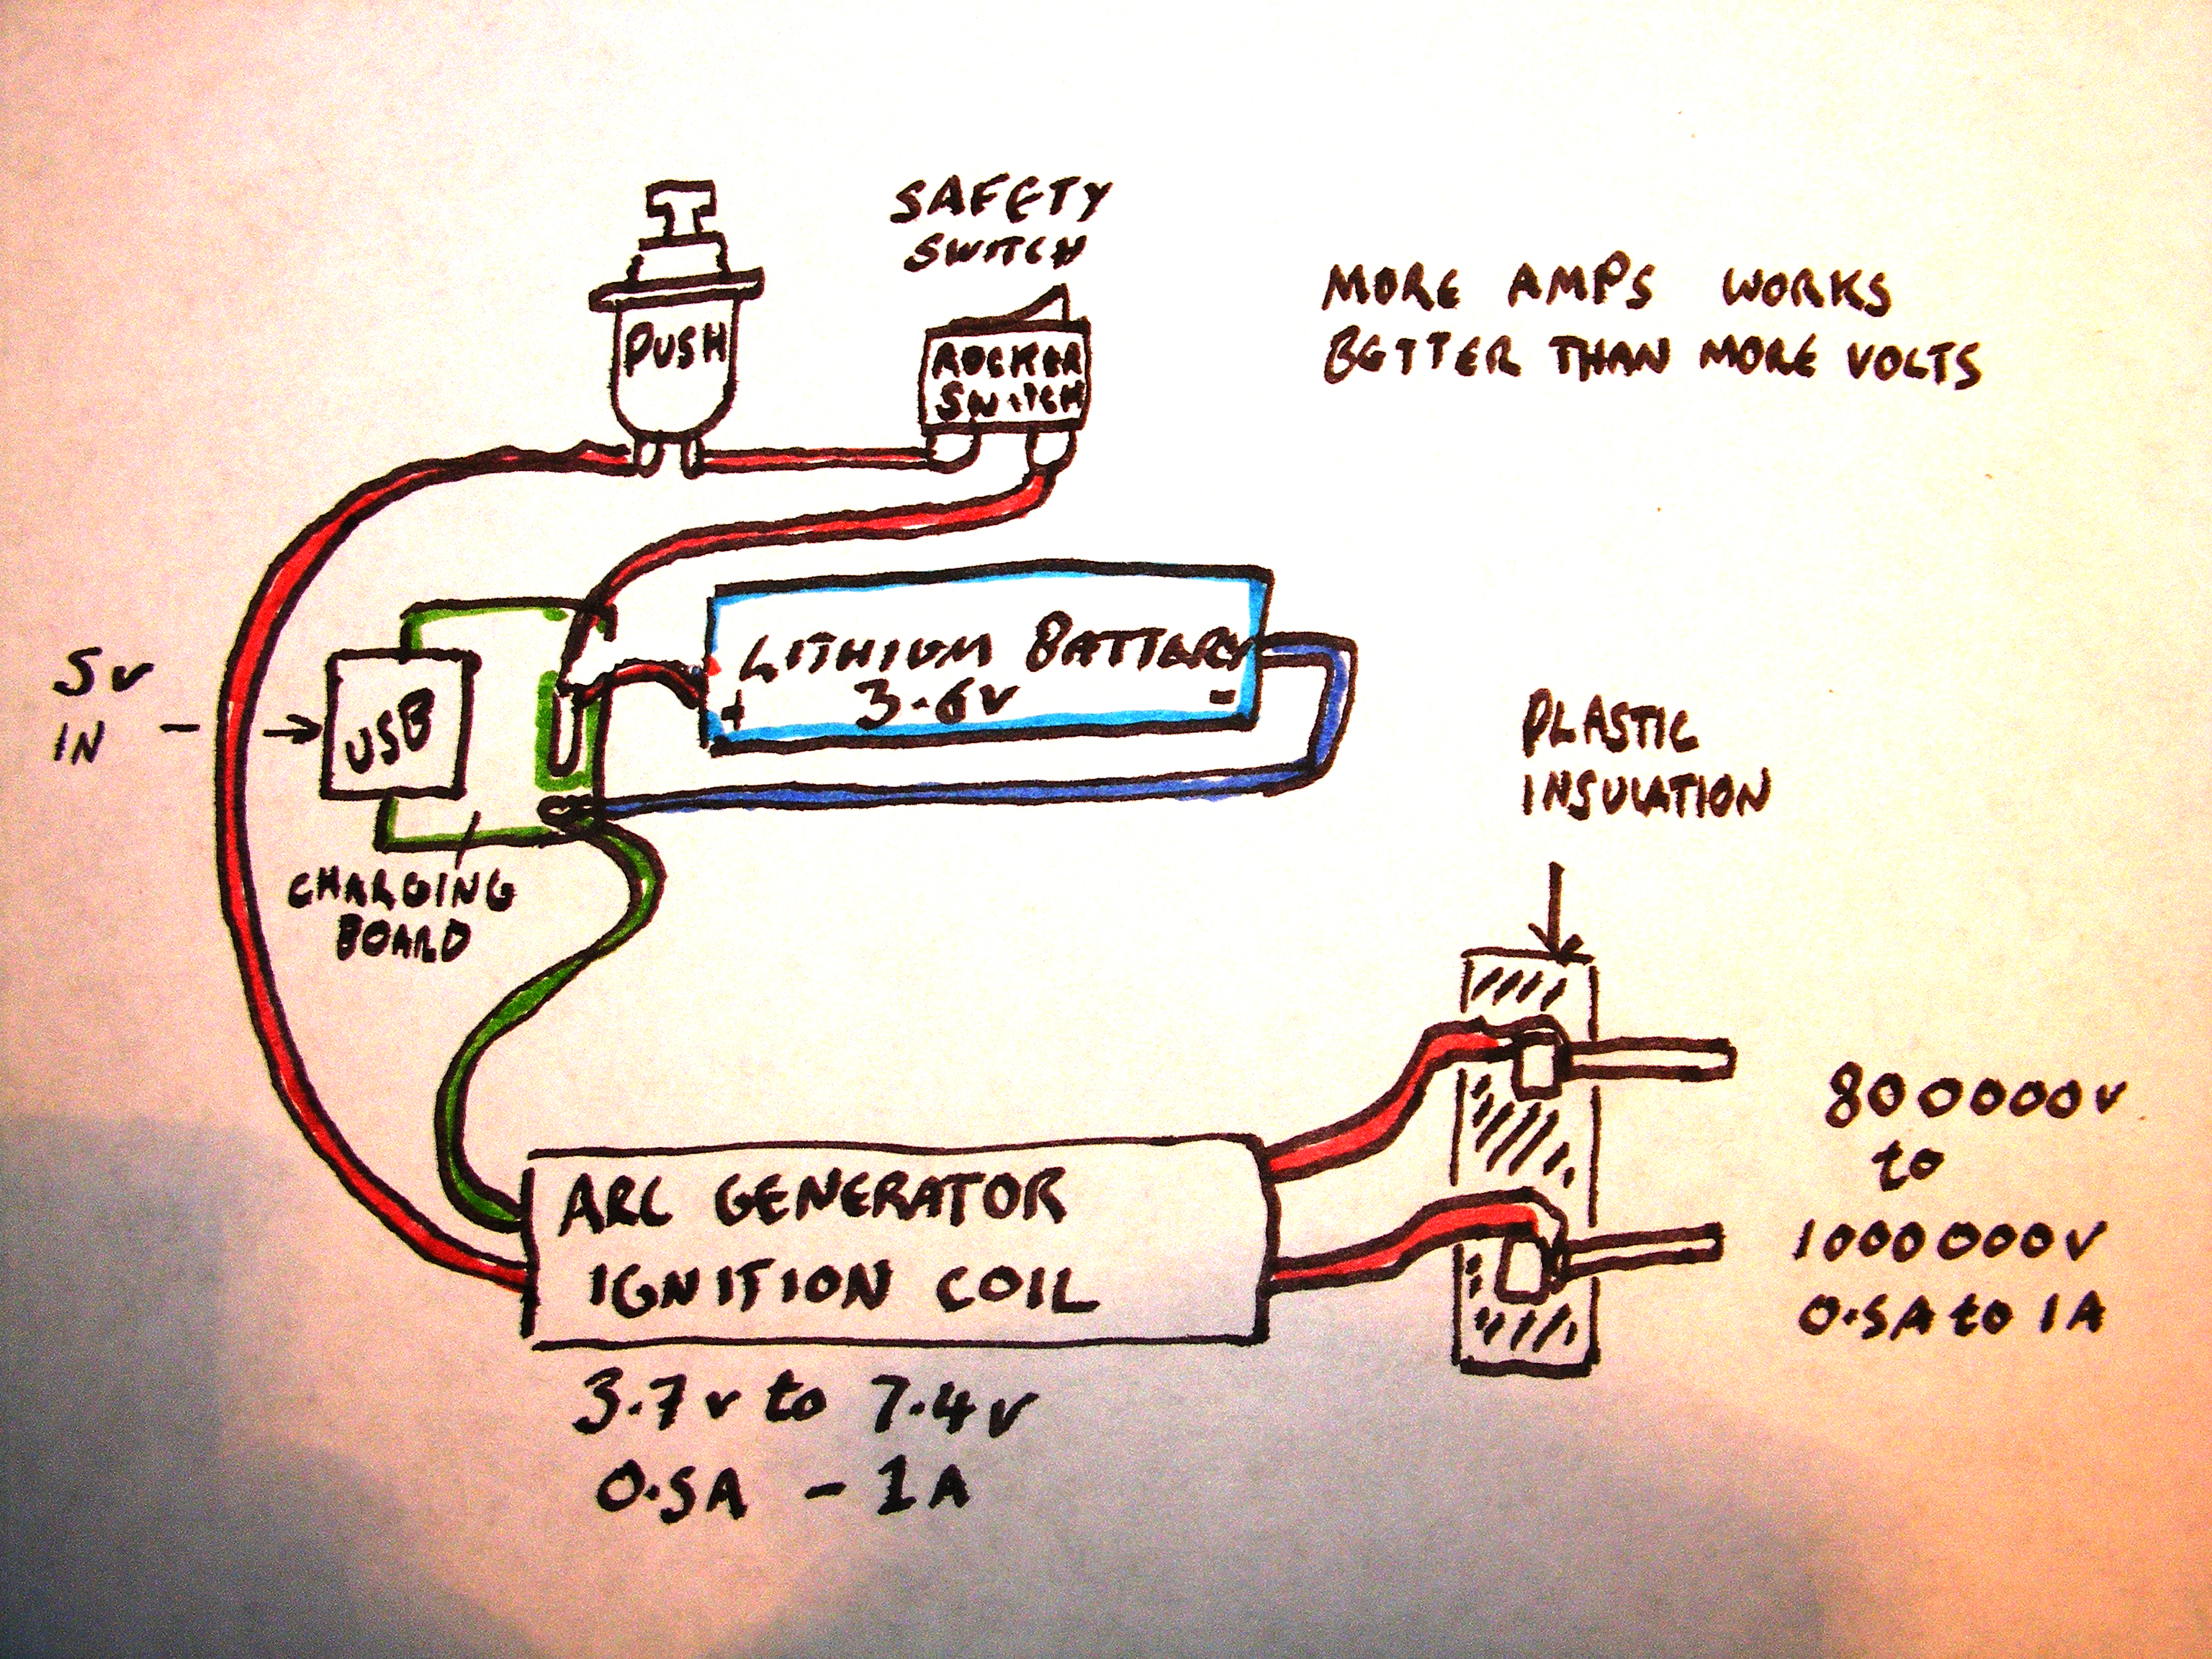 SAFETY
SWITCH
PUSH
ROCKER
SWITCH
MORE AMPS WORKS
BETTER THAN MORE VOLTS
5v
IN
USB
LITHIUM BATTERY
3.6v
+ -
CHARGING
BOARD
PLASTIC
INSULATION
ARC GENERATOR
IGNITION COIL
3.7v to 7.4v
0.5A - 1A
800000v
to
1000000v
0.5A to 1A